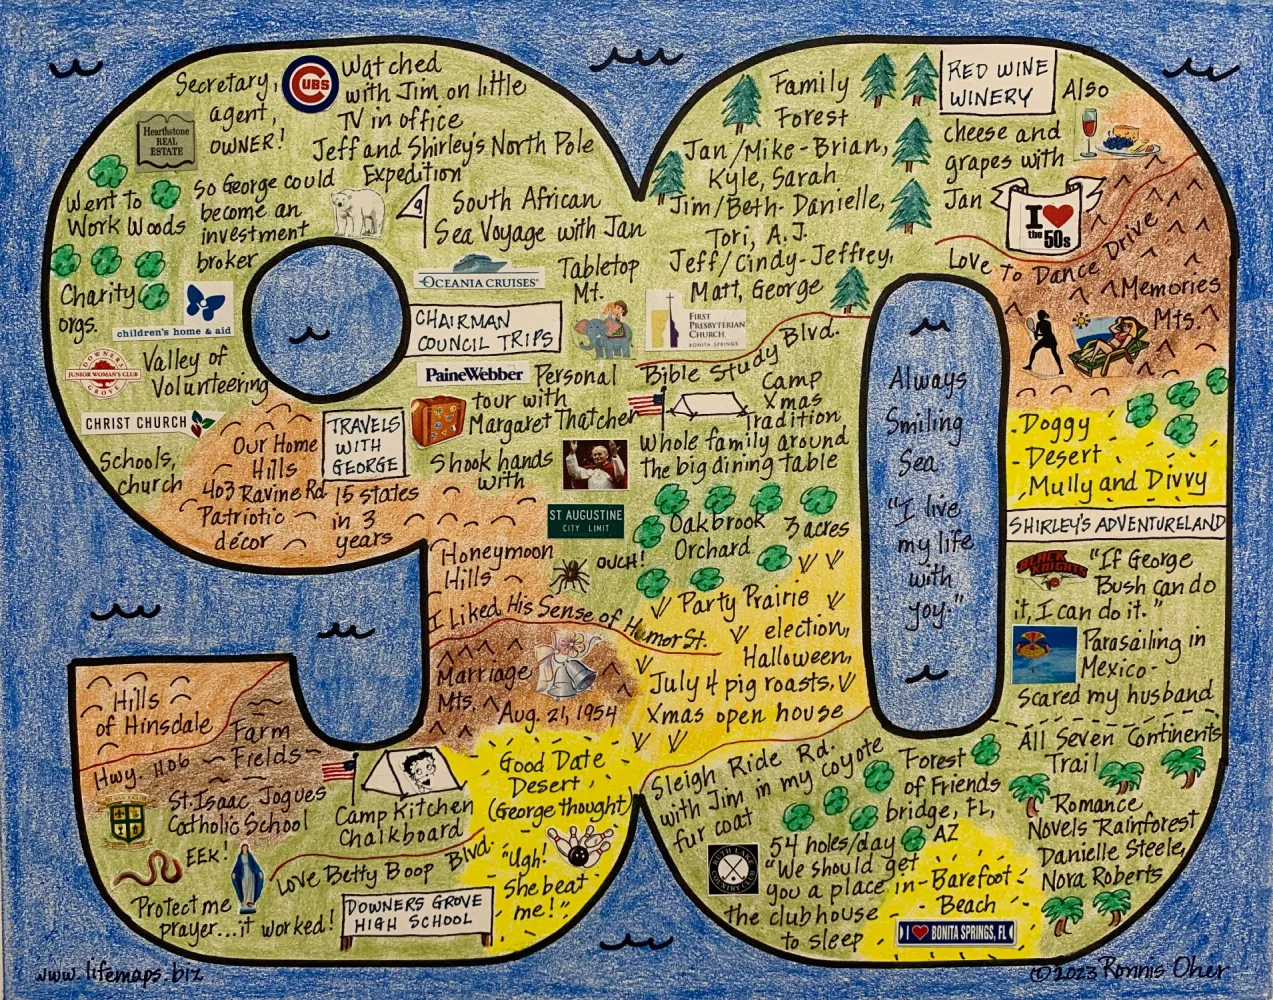 Secretary,
agent,
OWNER!
CUBS
Watched
with Jim on little
TV in office
Jeff and Shirley's North Pole
Expedition
Hearthstone
REAL
ESTATE
Went to
Work Woods
So George could
become an
investment
broker
South African
Sea Voyage with Jan
OCEANIA CRUISES®
Tabletop
Mt.
Charity
orgs.
children's home & aid
CHAIRMAN
COUNCIL TRIPS
DOWNERS
JUNIOR WOMAN'S CLUB
GROVE
Valley of
Volunteering
PaineWebber
Personal
tour with
Margaret Thatcher
CHRIST CHURCH
Schools,
church
Our Home
Hills
403 Ravine Rd
Patriotic
décor
TRAVELS
WITH
GEORGE
15 states
in 3
years
Shook hands
with
ST AUGUSTINE
CITY LIMIT
Honeymoon
Hills
OUCH!
I Liked His Sense of Humor St.
Marriage
Mts.
Aug. 21, 1954
Hills
of Hinsdale
Hwy. 1106
Farm
Fields
St. Isaac Jogues
Catholic School
EEK!
Protect me
prayer...it worked!
Camp Kitchen
Chalkboard
Love Betty Boop Blvd.
DOWNERS GROVE
HIGH SCHOOL
Good Date
Desert,
(George thought)
"Ugh!
She beat
me!"
Family
Forest
Jan/Mike-Brian,
Kyle, Sarah
Jim/Beth-Danielle,
Tori, A.J.
Jeff/Cindy-Jeffrey,
Matt, George
RED WINE
WINERY
Also
cheese and
grapes with
Jan
I ♥
the 50s
Love to Dance Drive
Memories
Mts.
FIRST
PRESBYTERIAN
CHURCH
BONITA SPRINGS
Bible Study Blvd.
Camp
Xmas
Tradition
Whole family around
the big dining table
Oakbrook
Orchard
3 acres
Party Prairie
election,
Halloween,
July 4 pig roasts,
Xmas open house
Always
Smiling
Sea
"I live
my life
with
joy."
-Doggy
-Desert
Mully and Divvy
SHIRLEY'S ADVENTURELAND
BLACK KNIGHTS
"If George
Bush can do
it, I can do it."
Parasailing in
Mexico-
scared my husband
All Seven Continents
Trail
Sleigh Ride Rd.
with Jim in my coyote
fur coat
Forest
of Friends
bridge, FL,
AZ
RUTH LAKE
COUNTRY CLUB
54 holes/day
"We should get
you a place in
the clubhouse
to sleep
-Barefoot
Beach
I ♥ BONITA SPRINGS, FL
Romance
Novels Rainforest
Danielle Steele,
Nora Roberts
www.lifemaps.biz
©2023 Ronnis Oher